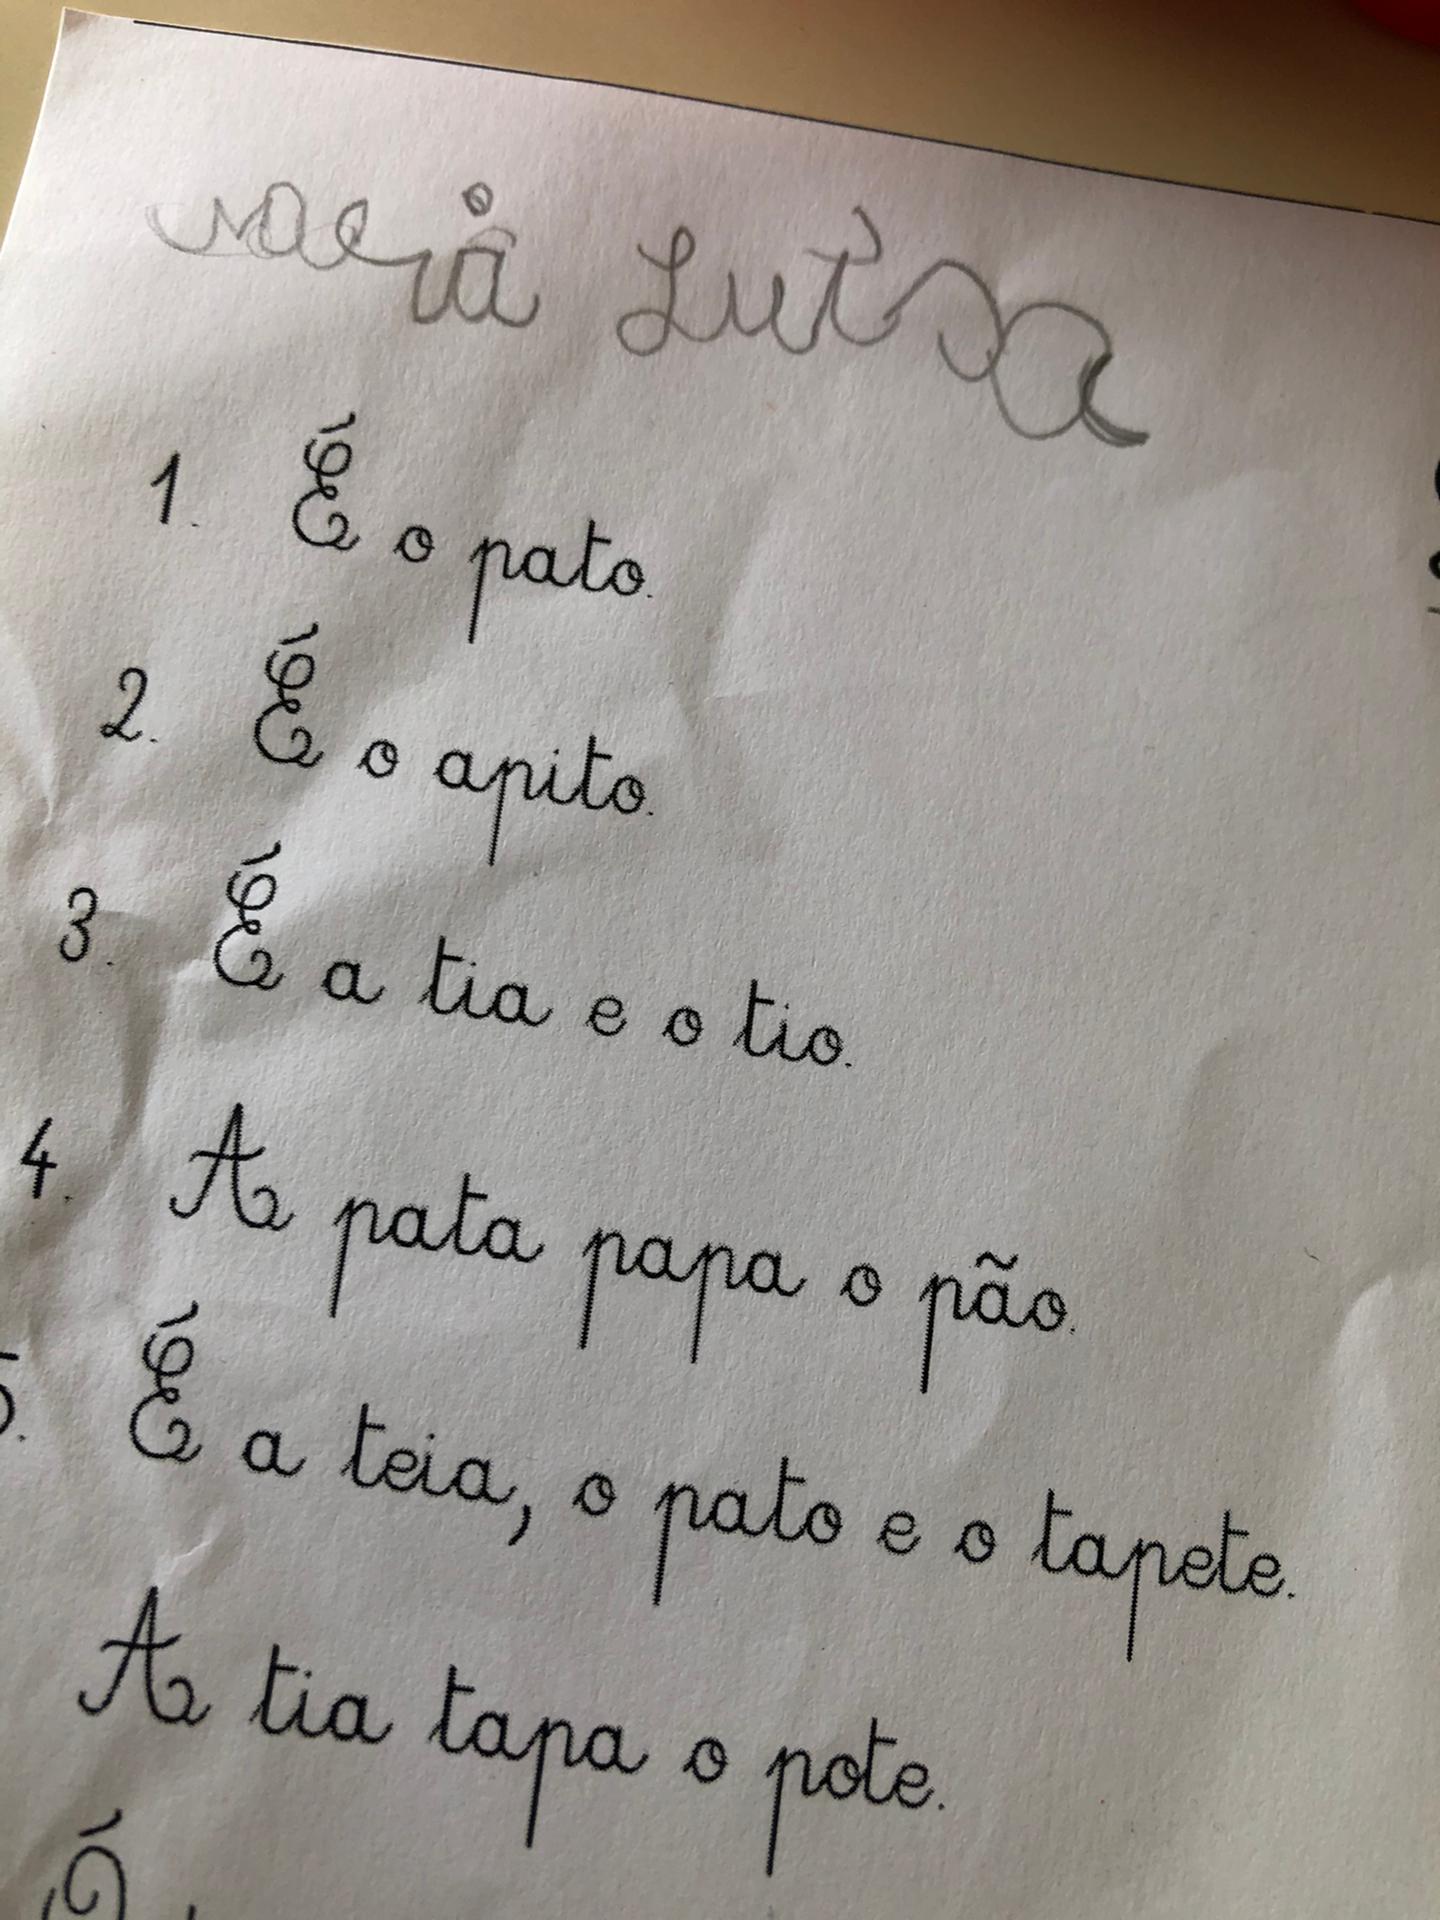 Maria Luísa
1. É o pato.
2. É o apito.
3. É a tia e o tio.
4. A pata papa o pão.
5. É a teia, o pato e o tapete.
A tia tapa o pote.